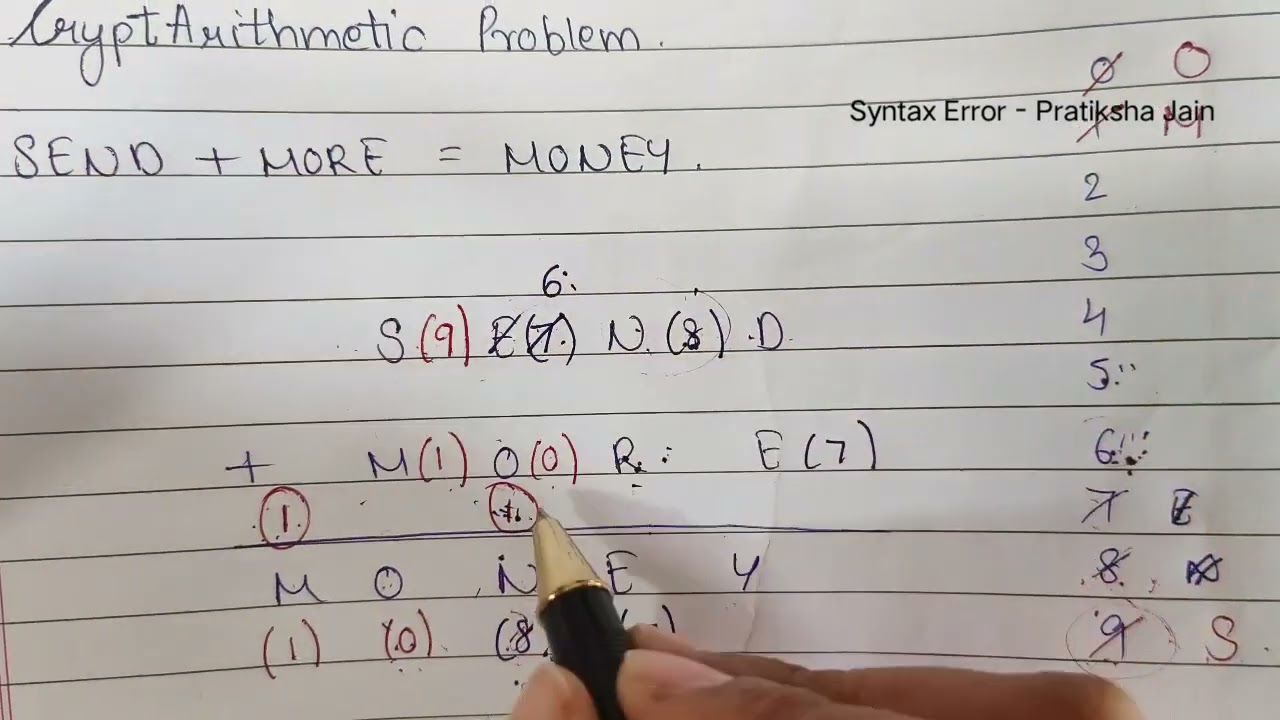 CryptArithmetic Problem.
0 O
Syntax Error - Pratiksha Jain
1 M
SEND + MORE = MONEY.
2
3
6
S (9) E (7) N (8) D
4
5
+ M (1) O (0) R E (7)
6
1
7 E
M O N E Y
8 N
(1) (0) (8
9 S